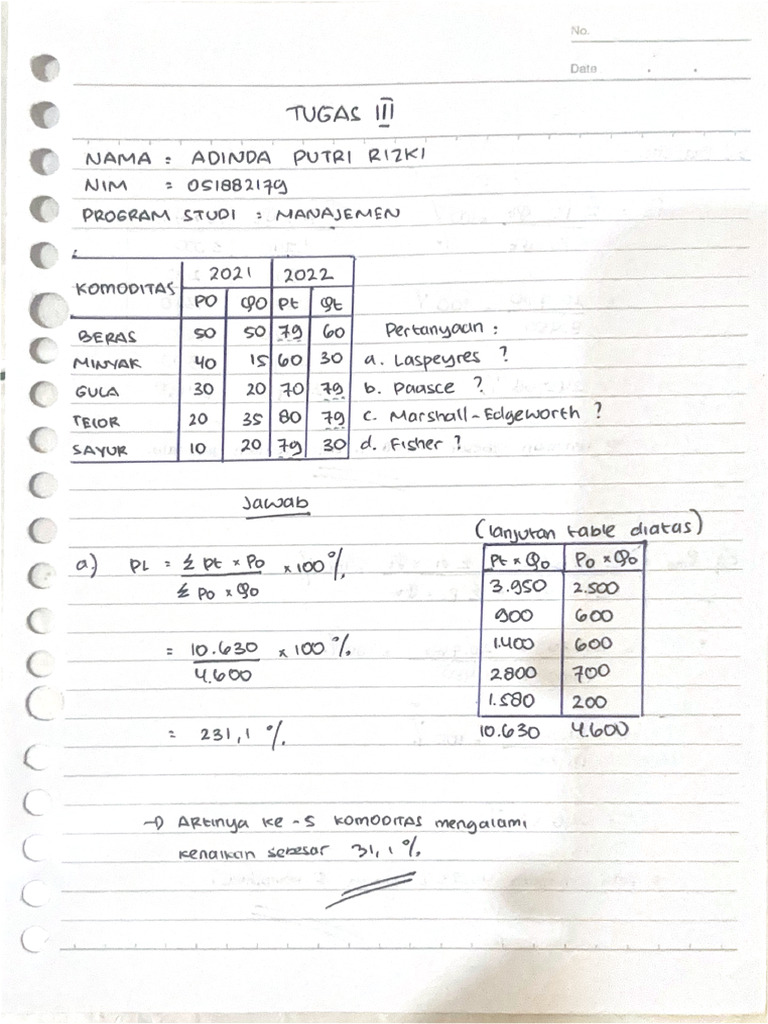 No.
Date . .
TUGAS III
NAMA : ADINDA PUTRI RIZKI
NIM : 051882179
PROGRAM STUDI : MANAJEMEN
KOMODITAS 2021 2022
PO QO Pt Qt
BERAS 50 50 79 60
MINYAK 40 15 60 30
GULA 30 20 70 79
TELOR 20 35 80 79
SAYUR 10 20 79 30
Pertanyaan :
a. Laspeyres ?
b. Paasce ?
c. Marshall-Edgeworth ?
d. Fisher ?
Jawab
(lanjutan table diatas)
Pt × Qo Po × Qo
3.950 2.500
900 600
1.400 600
2800 700
1.580 200
10.630 4.600
a) PL = Σ Pt × Po × 100%
Σ Po × Qo
= 10.630 × 100 %
4.600
= 231,1 %
→ Artinya ke-5 KOMODITAS mengalami
kenaikan sebesar 31,1 %